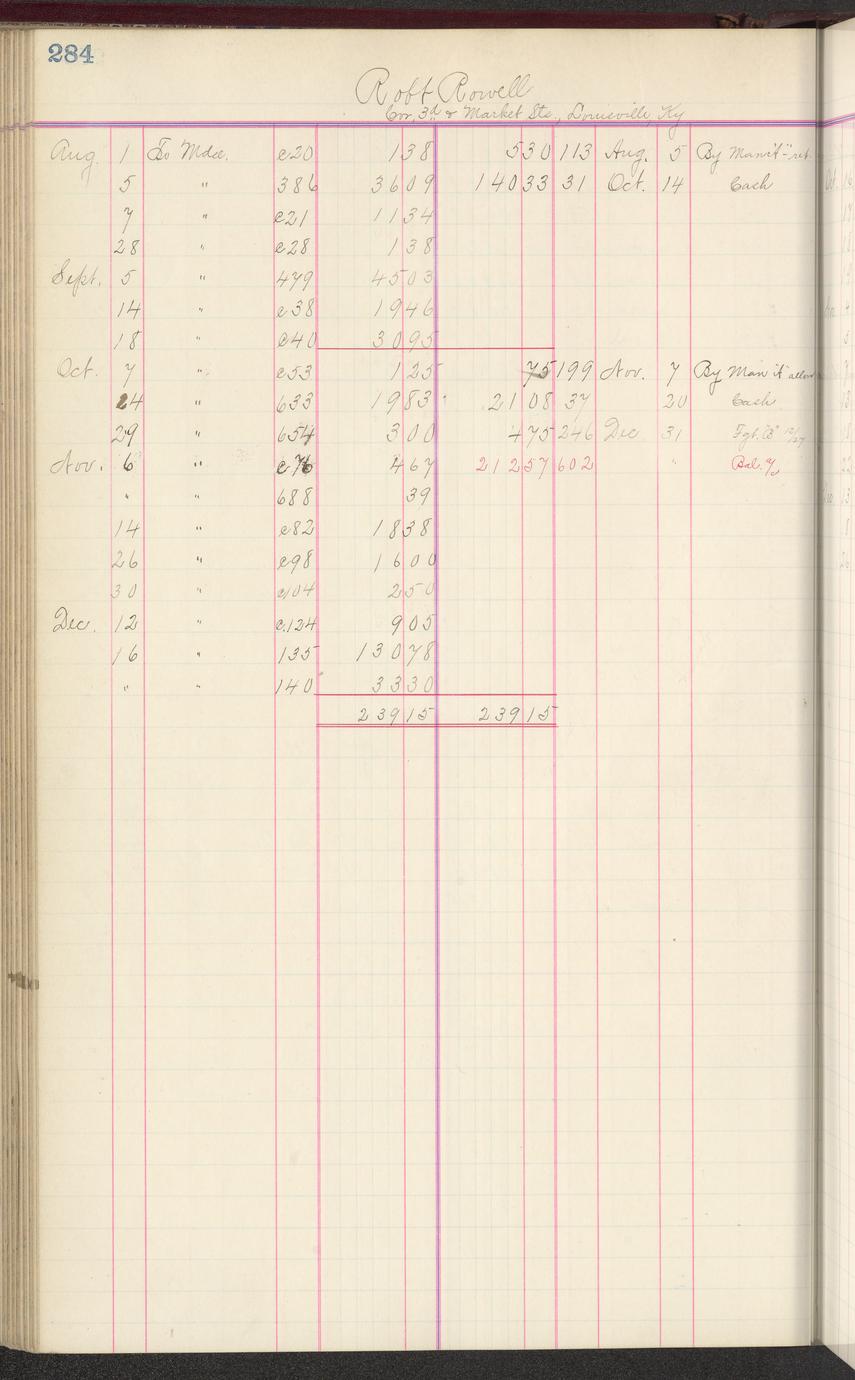 284
Robt Rowell
Cor. 3d & Market Sts., Louisville, Ky
Aug. 1 To Mdse. c20 138 530 113 Aug. 5 By Man "it" ret.
5 " 386 3609 14033 31 Oct. 14 Cash
7 " c21 1134
28 " c28 138
Sept. 5 " 479 4503
14 " c38 1946
18 " c40 3095
Oct. 7 " c53 125 75 199 Nov. 7 By Man "it" allow
24 " 633 1983 2108 37 20 Cash
29 " 654 300 475 246 Dec 31 Fgt. "B" 12/27
Nov. 6 " c76 467 21257 602 " Bal. %
" " 688 39
14 " c82 1838
26 " c98 1600
30 " c104 250
Dec. 12 " c124 905
16 " 135 13078
" " 140 3330
23915 23915